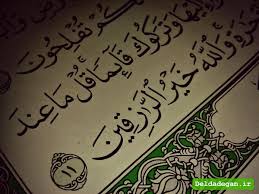 تُفْلِحُونَ
إِلَيْهَا وَتَرَكُوكَ قَآئِمًا قُلْ مَا عِندَ
وَٱللَّهُ خَيْرُ ٱلرَّٰزِقِينَ
١١
Deldadegan.ir